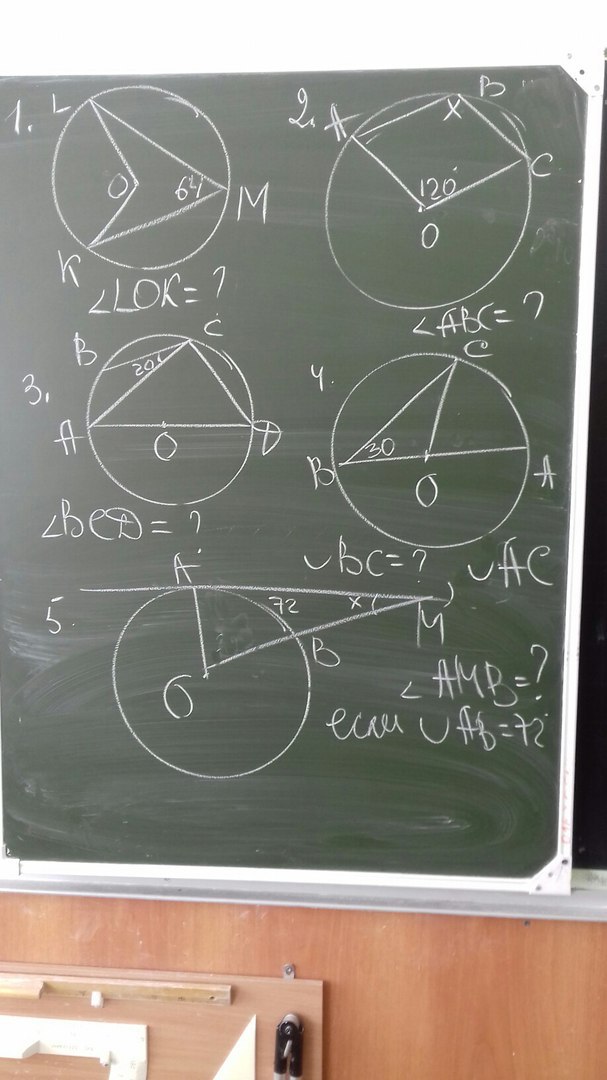 1.
L
O
64°
M
K
∠LOK = ?
2.
A
B
x
C
120°
O
∠ABC = ?
3.
B
C
20°
A
O
D
∠BCD = ?
4.
C
B
30
O
A
∪BC = ? ∪AC
5.
A
72
x
M
B
O
∠AMB = ?
если ∪AB = 72°